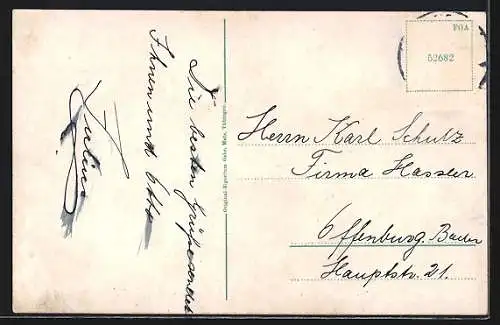 Die besten Grüße sendet
Ihnen und Otto
Julius
Original-Eigentum Gebr. Metz, Tübingen.
FOA
52682
Herrn Karl Schulz
Firma Hassler
Offenburg. Baden
Hauptstr. 21.